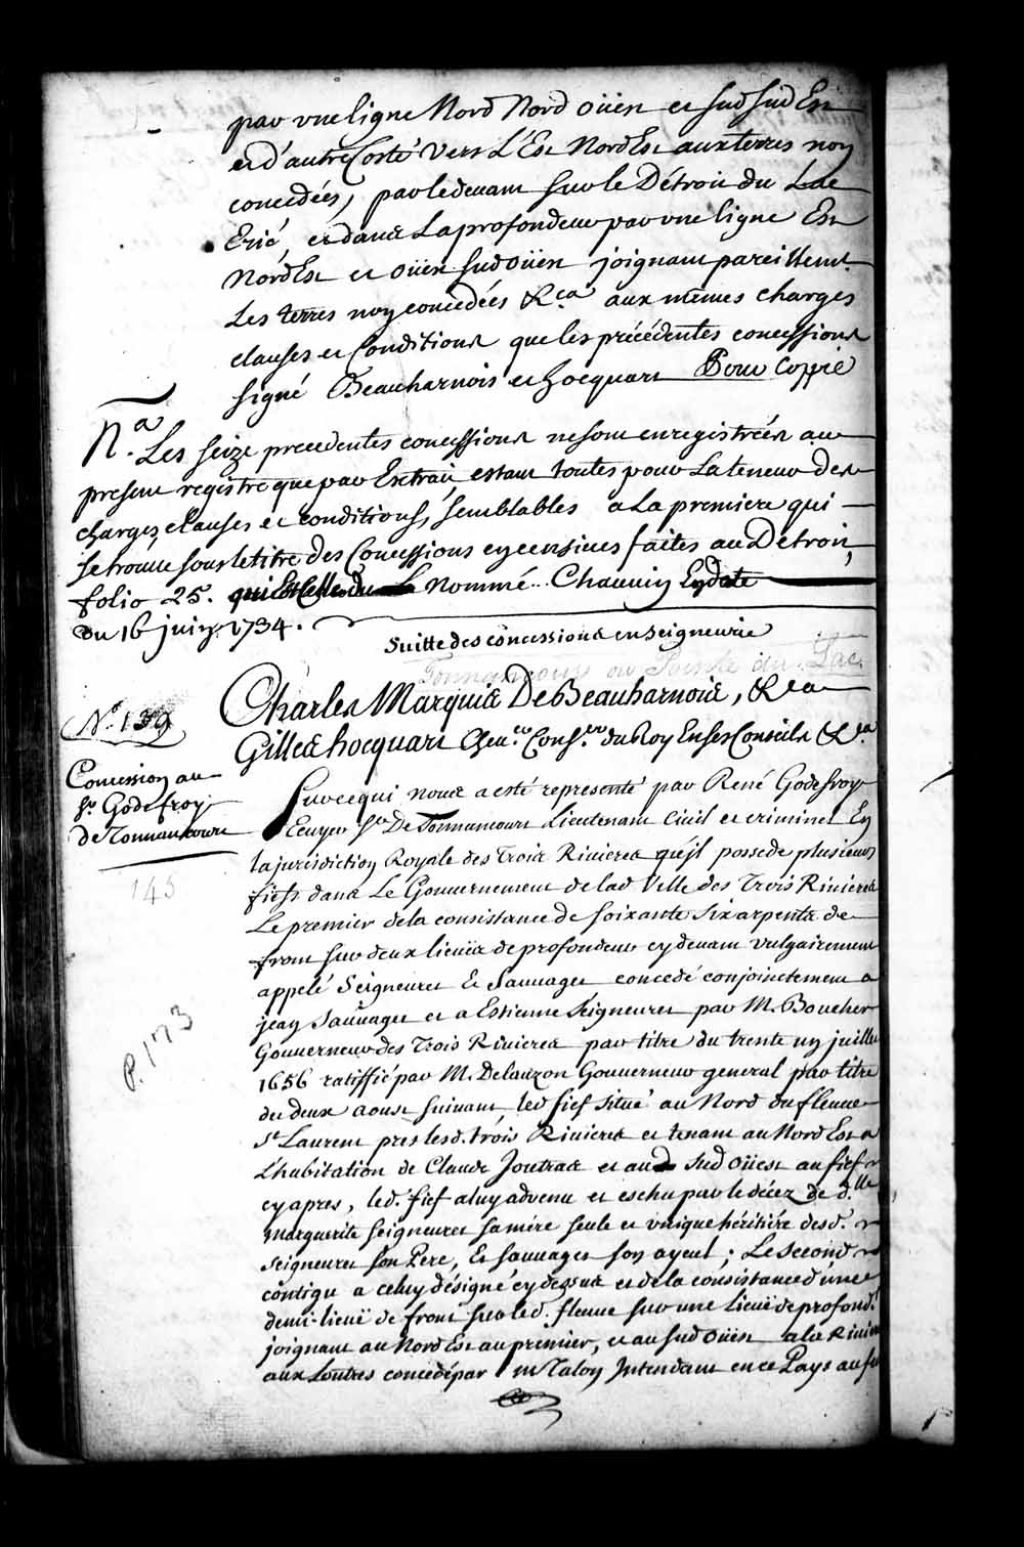 par une ligne Nord Nord oüest et sud sud Est
et d'autre Costé vers L'Est Nord Est aux terres non
concedées, par le devant sur le Détroit du Lac
Erié, et dans La profondeur par une ligne Est
Nord Est et oüest sud oüest joignant pareillemt.
Les terres non concedées &ca aux mêmes charges
clauses et Conditions que les précédentes concessions
signé Beauharnois et hocquart Pour Coppie
Na. Les seize precedentes concessions ne sont enregistrées au
present registre que par Extrait estant toutes pour La teneur des
charges, clauses et conditions, semblables a La premiere qui
se trouve sous le titre des Concessions en censives faites au Détroit,
folio 25. qui Est Celle du Nommé Chauvin En date
du 16 juin 1734.
Suitte des concessions en seigneurie
Tonnancour ou Pointe du Lac
Charles Marquis De Beauharnois, &ca
Gilles hocquart Chevr. Consr. du Roy En ses Conseils &ca
No. 139
Concession au
Sr. Godefroy
de Tonnancourt
145
P. 173
Sur ce qui nous a esté representé par René Godefroy
Ecuyer Sr. De Tonnancourt Lieutenant Civil et criminel En
la jurisdiction Royale des Trois Rivieres qu'jl possede plusieurs
fiefs dans Le Gouvernement de lad Ville des Trois Rivieres
Le premier de la consistance de soixante six arpents de
front sur deux lieües de profondeur cy devant vulgairement
appelé Seigneuret & Sauvaget concedé conjointement a
jean Sauvaget et a Estienne Seigneuret par M. Boucher
Gouverneur des Trois Rivieres par titre du trente un juillet
1656 ratiffié par M. De lauzon Gouverneur general par titre
du deux aoust suivant, led fief situé au Nord du fleuve
St Laurent pres lesd. trois Rivieres et tenant au Nord Est a
L'habitation de Claude Joutras et au sud oüest au fief
cy apres, led. fief a luy advenu et eschu par le décez de d.lle
marguerite seigneuret sa mére seule et unique héritiére desd.
seigneuret son Pere, Et sauvaget son ayeul; Le second
contigu a celuy désigné cy dessus et de la consistance d'une
demi-lieuë de front sur led. fleuve sur une Lieuë de profond.
joignant au Nord Est au premier, et au sud oüest a la Rivi
aux Loutres concedé par m Talon Intendant en ce Pays au s